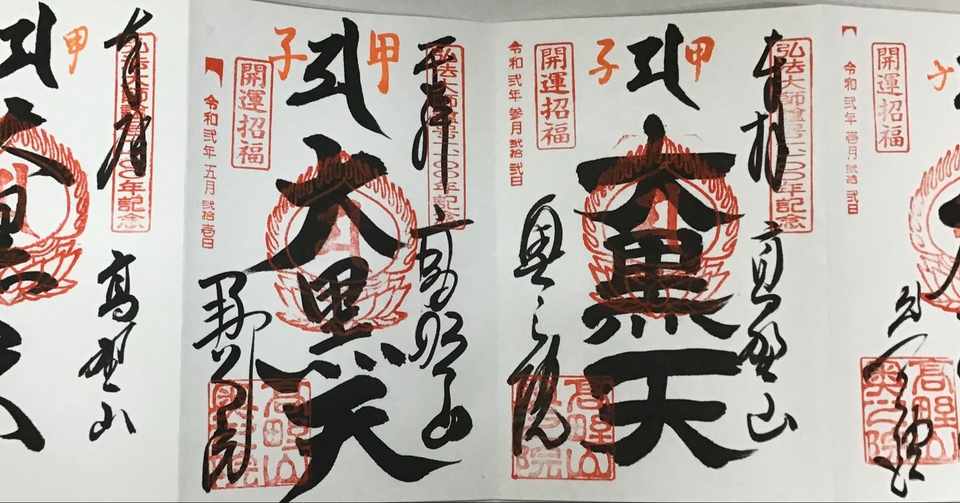 子
開運招福
令和弐年壱月弐拾弐日
奥之院
高野山
奥之院
弘法大師諡号一一〇〇年記念
奉拝
高野山
甲
大黒天
子
開運招福
令和弐年参月弐拾弐日
奥之院
高野山
奥之院
弘法大師諡号一一〇〇年記念
奉拝
甲
大黒天
子
開運招福
令和弐年五月弐拾壱日
高野山
奥之院
弘法大師諡号一一〇〇年記念
奉拝
高野山
甲